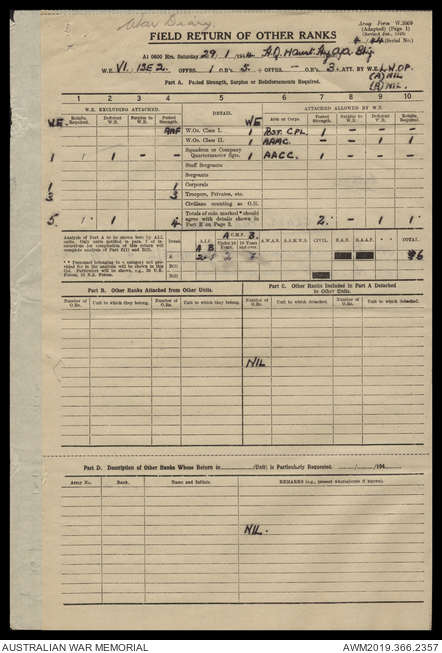 War Diary.
Army Form W.3009
(Adapted) (Page 1)
FIELD RETURN OF OTHER RANKS
(Serial No.)
At 0600 Hrs. Saturday 29/1/1944
W.E. VI. 13E 2. OFFRS. 1 O.R's. 5. + OFFRS. — O.R's. 3 ATT. BY W.E.
(A) NIL
NIL.
Part A. Posted Strength, Surplus or Reinforcements Required.
1 2 3 4 5 6 7 8 9 10
W.E. EXCLUDING ATTACHED. DETAIL ATTACHED ALLOWED BY W.E.
W.E. Reinfts. Required. Deficient W.E. Surplus to W.E. Posted Strength. WE Arm or Corps. Posted Strength. Surplus to W.E. Deficient W.E. Reinfts. Required.
AMF W.Os. Class I. 1 CPL. 1 — — —
W.Os. Class II. 1 AAMC. — — 1 1
1 1 1 — — Squadron or Company Quartermaster Sgts. 1 AACC. 1 — — —
Staff Sergeants
Sergeants
1 1 Corporals
3 3 Troopers, Privates, etc.
Civilians counting as O.R.
5 1 1 4 Totals of cols. marked * should agree with details shown in Part E on Page 2. 2. — 1 1
Analysis of Part A to be shown here by ALL units. Only units notified in para. 7 of instructions for compilation of this return will complete analysis of Part B(1) and B(2).
** Personnel belonging to a category not provided for in the analysis will be shown in this Col. Particulars will be shown, e.g., 20 U.K. Forces, 10 N.Z. Forces.
Detail A.I.F. C.M.F. Under 19 Years. 19 Years and over. A.W.A.S. A.A.M.W.S. CIVIL R.A.N. R.A.A.F. * * TOTAL
A
B(1)
B(2)
Part B. Other Ranks Attached from Other Units. Part C. Other Ranks Included in Part A Detached to Other Units.
Number of O.Rs. Unit to which they belong. Number of O.Rs. Unit to which they belong. Number of O.Rs. Unit to which detached. Number of O.Rs. Unit to which detached.
NIL
Part D. Description of Other Ranks Whose Return to (Unit) is Particularly Requested. / /194
Army No. Rank. Name and Initials. REMARKS (e.g., present whereabouts if known).
NIL.
AUSTRALIAN WAR MEMORIAL AWM2019.366.2357